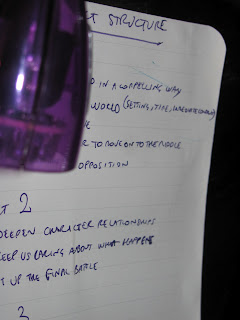 T STRUCTURE
D IN A COMPELLING WAY
WORLD (SETTING, TIME, IMMEDIATE CONTEXT)
E
R TO MOVE ON TO THE MIDDLE
OPPOSITION
T 2
DEEPEN CHARACTER RELATIONSHIPS
KEEP US CARING ABOUT WHAT HAPPENS
T UP THE FINAL BATTLE
3